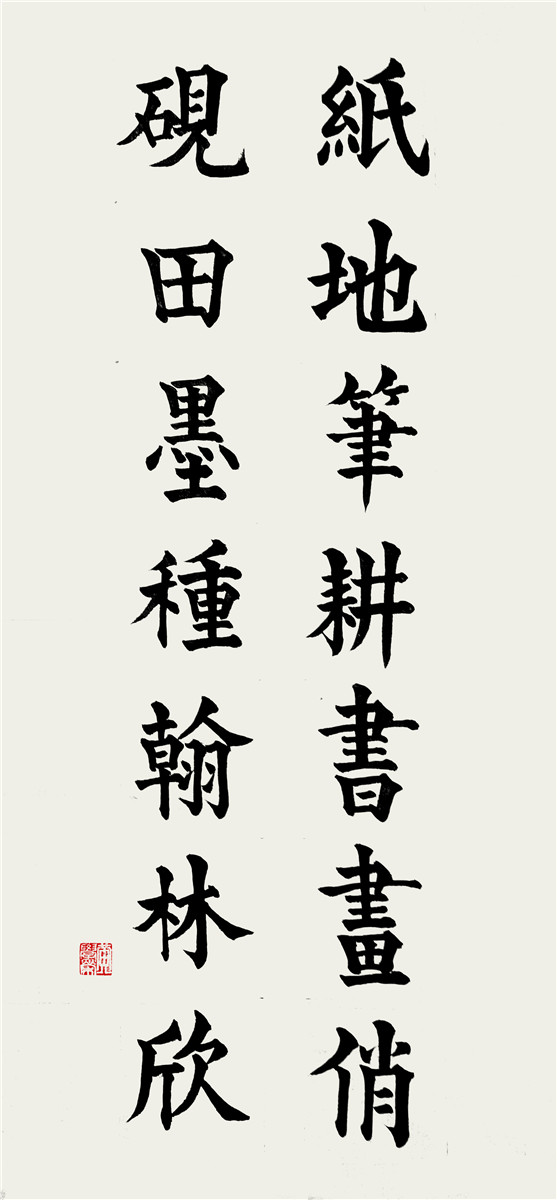 紙地筆耕書畫俏
硯田墨種翰林欣